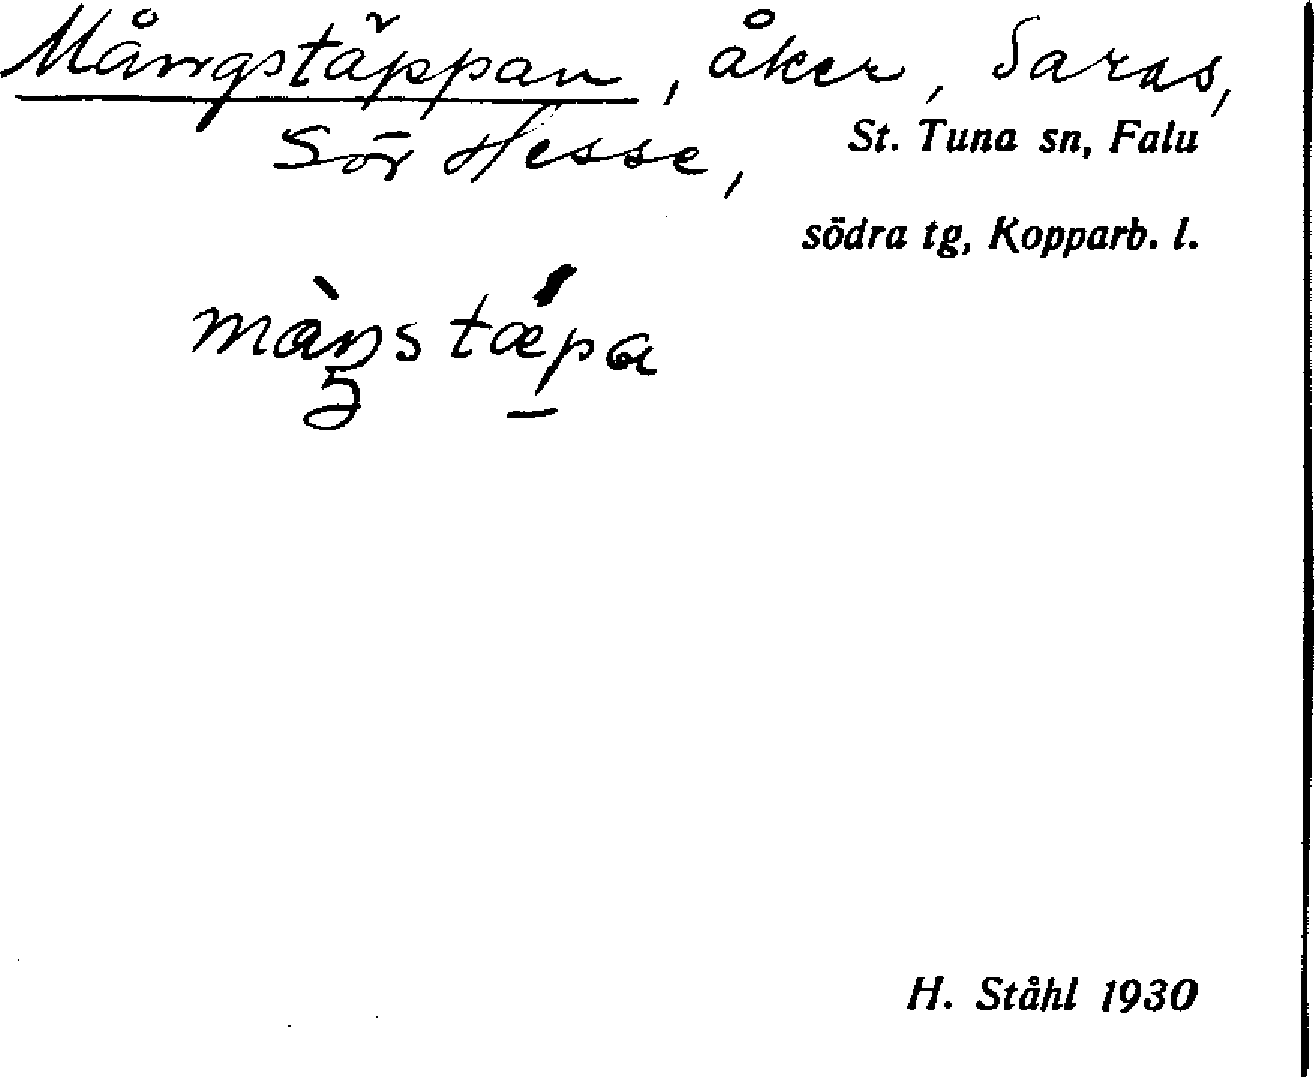 Mångstäppan, åker, Saras,
Sör Hesse,
St. Tuna sn, Falu
södra tg, Kopparb. l.
màŋstǽpa
H. Ståhl 1930